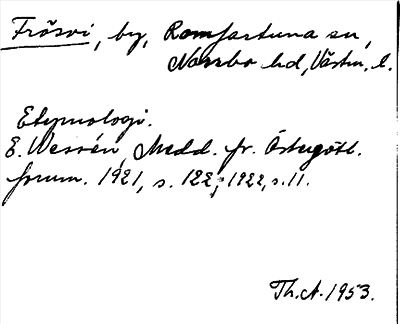 Frösvi, by, Romfartuna sn,
Norrbo hd, Västm. l.
Etymologi.
E. Wessén, Medd. fr. Östergötl.
fornm. 1921, s. 122; 1922, s. 11.
Th. A. 1953.